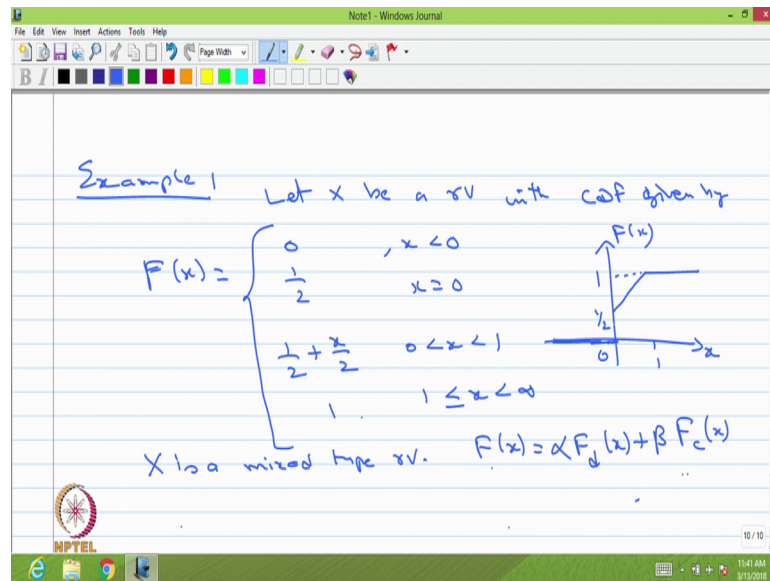 Note1 - Windows Journal
File Edit View Insert Actions Tools Help
Page Width
B I
Example 1 Let X be a rv with cdf given by
F(x) = { 0 , x < 0
1/2 x = 0
1/2 + x/2 0 < x < 1
1 . 1 ≤ x < ∞
F(x)
1
1/2
0 1 x
X is a mixed type rv. F(x) = α F_d(x) + β F_c(x)
NPTEL
10 / 10
11:41 AM
3/13/2018